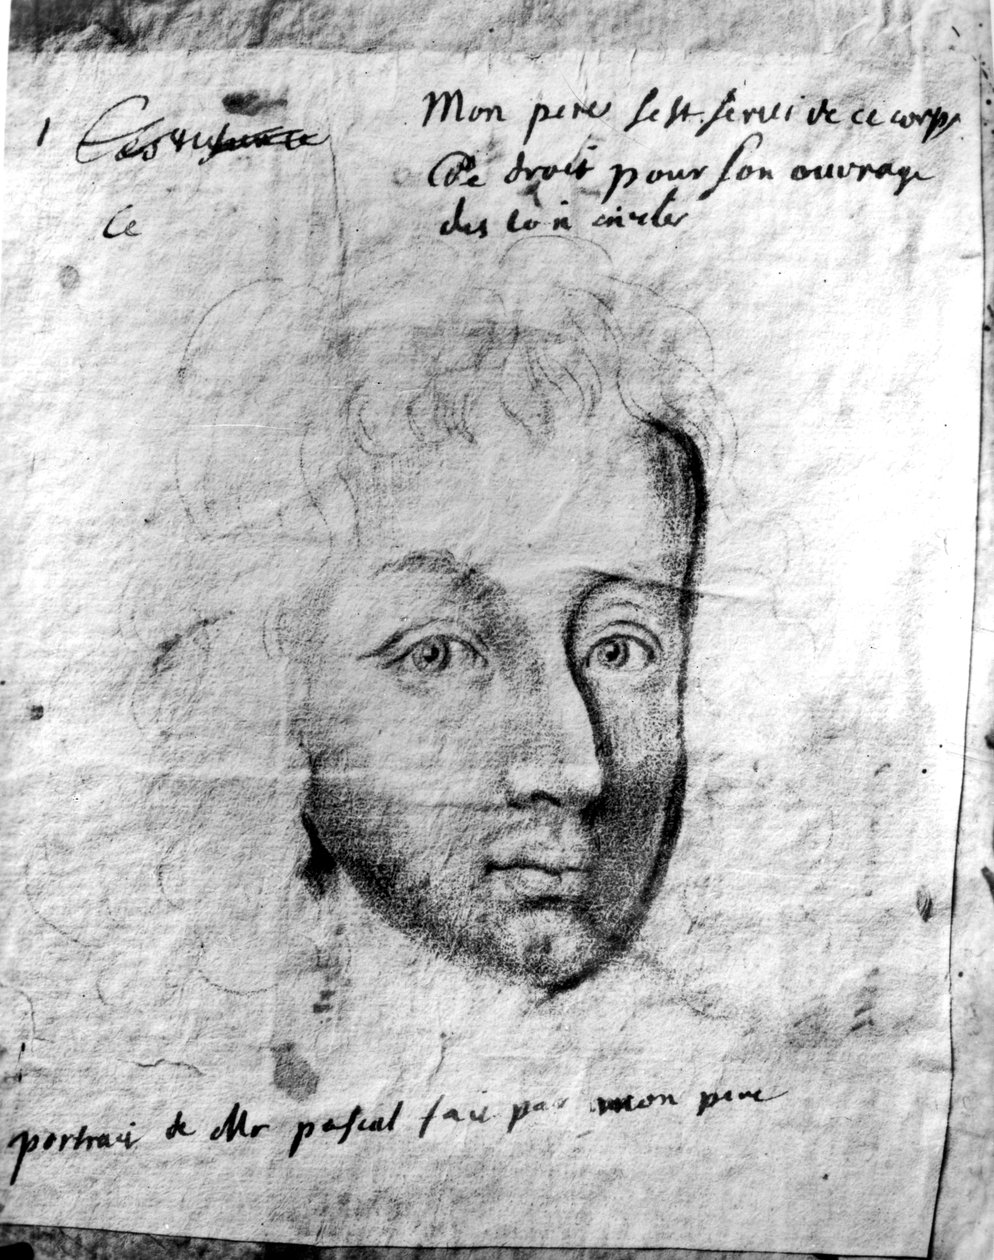 Mon pere sest servi de ce corps
de droit pour son ouvrage
des loix civiles
Ce
portrait de Mr pascal fait par mon pere